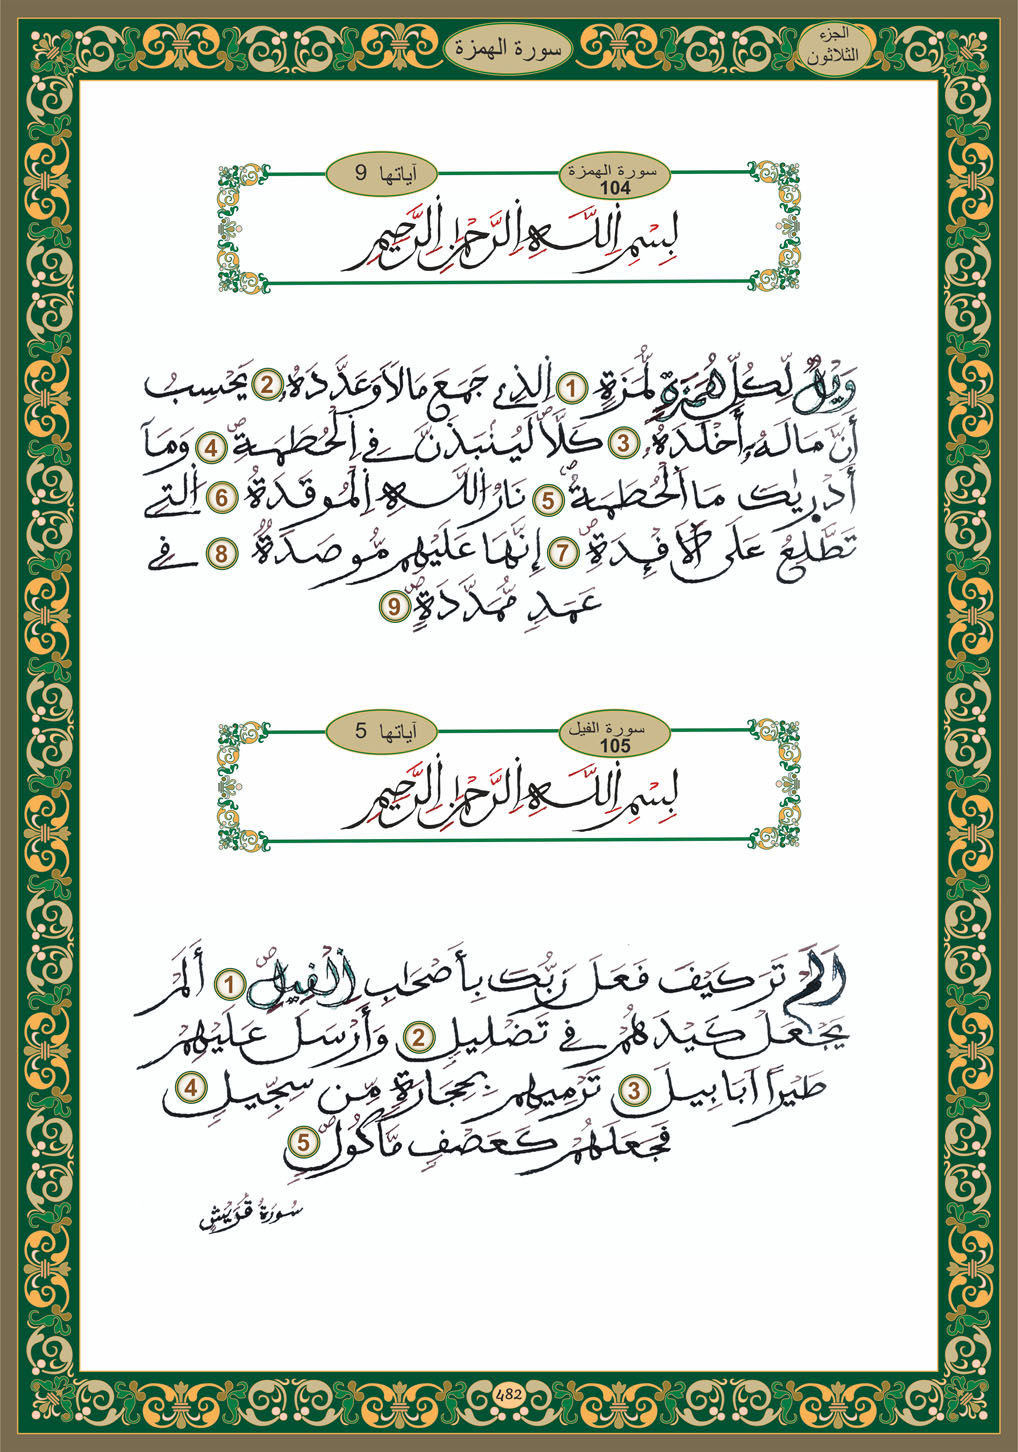 الجزء
الثلاثون
سورة الهمزة
سورة الهمزة
104
آياتها 9
بِسْمِ اِللَّهِ اِلرَّحْمَٰنِ اِلرَّحِيمِ
وَيْلٌ لِّكُلِّ هُمَزَةٍ لُّمَزَةٍ 1 اِلذِے جَمَعَ مَالاً وَعَدَّدَهُۥ 2 يَحْسِبُ
أَنَّ مَالَهُۥ أَخْلَدَهُۥ 3 كَلَّا لَيُنۢبَذَنَّ فِے اِلْحُطَمَةِ 4 وَمَآ
أَدْر۪يٰكَ مَا اَلْحُطَمَةُ 5 نَارُ اُللَّهِ اِلْمُوقَدَةُ 6 اُلتِے
تَطَّلِعُ عَلَى اَلْأَفْـِٕدَةِ 7 إِنَّهَا عَلَيْهِم مُّوصَدَةٌ 8 فِے
عَمَدٍ مُّمَدَّدَةٍ 9
سورة الفيل
105
آياتها 5
بِسْمِ اِللَّهِ اِلرَّحْمَٰنِ اِلرَّحِيمِ
أَلَمْ تَرَ كَيْفَ فَعَلَ رَبُّكَ بِأَصْحَٰبِ اِلْفِيلِ 1 أَلَمْ
يَجْعَلْ كَيْدَهُمْ فِے تَضْلِيلٍ 2 وَأَرْسَلَ عَلَيْهِمْ
طَيْراً اَبَابِيلَ 3 تَرْمِيهِم بِحِجَارَةٍ مِّن سِجِّيلٍ 4
فَجَعَلَهُمْ كَعَصْفٍ مَّأْكُولٍ 5
سُورَةُ قُرَيْشٍ
482